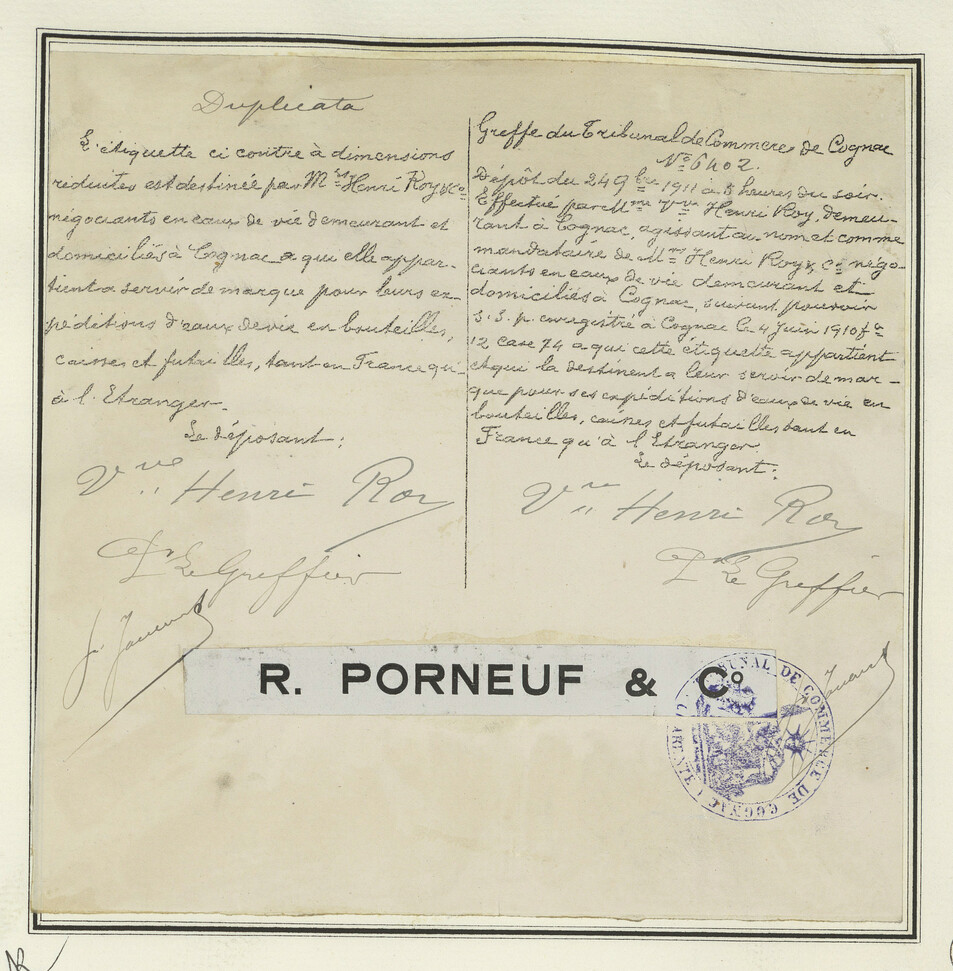 Duplicata
L'étiquette ci contre à dimensions
réduites est destinée par M.rs Henri Roy & Co
négociants en eaux de vie demeurant et
domiciliés à Cognac a qui elle appar-
tient a servir de marque pour leurs ex-
péditions d'eaux de vie en bouteilles,
caisses et futailles, tant en France qu'
à l'Etranger.
Le déposant:
Vve Henri Roy
Pr Le Greffier
Greffe du Tribunal de Commerce de Cognac
No 6402.
Dépôt du 24 9bre 1911 a 3 heures du soir.
Effectué par Mme Vve Henri Roy, demeu-
rant à Cognac, agissant au nom et comme
mandataire de M.rs Henri Roy & Co négo-
ciants en eaux de vie demeurant et
domiciliés à Cognac, suivant pouvoir
S.S.p. enregistré à Cognac le 4 Juin 1910 fo
12 case 74 a qui cette étiquette appartient
et qui la destinent a leur servir de mar-
que pour ses expéditions d'eaux de vie en
bouteilles, caisses et futailles tant en
France qu'à l'Etranger.
Le déposant:
Vve Henri Roy
Pr Le Greffier
R. PORNEUF & Co
TRIBUNAL DE COMMERCE DE COGNAC
CHARENTE